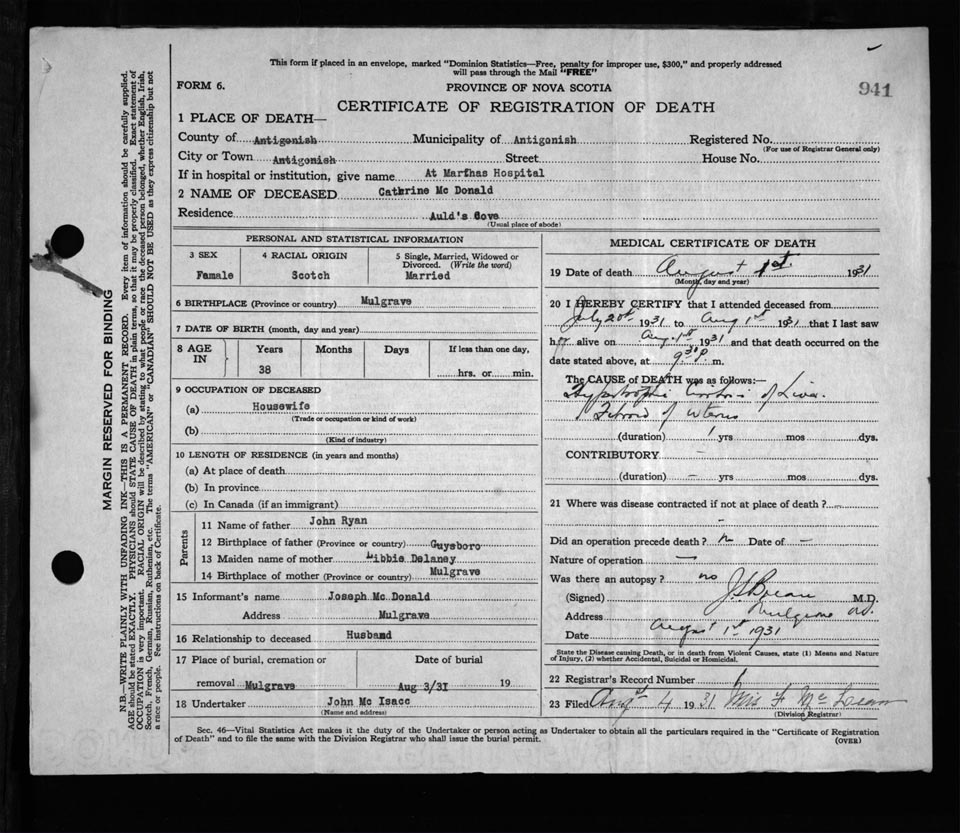 This form if placed in an envelope, marked "Dominion Statistics—Free, penalty for improper use, $300," and properly addressed
will pass through the Mail "FREE"
FORM 6.
PROVINCE OF NOVA SCOTIA
941
CERTIFICATE OF REGISTRATION OF DEATH
1 PLACE OF DEATH—
County of Antigonish Municipality of Antigonish Registered No.
(For use of Registrar General only)
City or Town Antigonish Street House No.
If in hospital or institution, give name At Marthas Hospital
2 NAME OF DECEASED Cathrine Mc Donald
Residence Auld's Cove
(Usual place of abode)
PERSONAL AND STATISTICAL INFORMATION
3 SEX 4 RACIAL ORIGIN 5 Single, Married, Widowed or
Divorced. (Write the word)
Famale Scotch Married
6 BIRTHPLACE (Province or country) Mulgrave
7 DATE OF BIRTH (month, day and year)
8 AGE IN Years Months Days If less than one day,
38 hrs. or min.
9 OCCUPATION OF DECEASED
(a) Housewife
(Trade or occupation or kind of work)
(b)
(Kind of industry)
10 LENGTH OF RESIDENCE (in years and months)
(a) At place of death
(b) In province
(c) In Canada (if an immigrant)
Parents
11 Name of father John Ryan
12 Birthplace of father (Province or country) Guysboro
13 Maiden name of mother Libbie Delaney
14 Birthplace of mother (Province or country) Mulgrave
15 Informant's name Joseph Mc Donald
Address Mulgrave
16 Relationship to deceased Husband
17 Place of burial, cremation or Date of burial
removal Mulgrave Aug 3/31 19
18 Undertaker John Mc Isacc
(Name and address)
MEDICAL CERTIFICATE OF DEATH
19 Date of death August 1st 1931
(Month, day and year)
20 I HEREBY CERTIFY that I attended deceased from
July 20th 1931 to Aug 1st 1931 that I last saw
her alive on Aug. 1st 1931 and that death occurred on the
date stated above, at 9 30 P. m.
The CAUSE OF DEATH was as follows:—
of Liver.
Fibroid of uterus
(duration) 1 yrs mos dys.
CONTRIBUTORY —
(duration) — yrs mos dys.
21 Where was disease contracted if not at place of death?
–
Did an operation precede death? n Date of –
Nature of operation —
Was there an autopsy? no
(Signed) M.D.
Address Mulgrave N.S.
Date August 1st 1931
State the Disease causing Death, or in death from Violent Causes, state (1) Means and Nature
of Injury, (2) whether Accidental, Suicidal or Homicidal.
22 Registrar's Record Number 1
23 Filed Aug st 4 1931 Mrs F Mc Lean
(Division Registrar)
Sec. 46—Vital Statistics Act makes it the duty of the Undertaker or person acting as Undertaker to obtain all the particulars required in the "Certificate of Registration
of Death" and to file the same with the Division Registrar who shall issue the burial permit.
(OVER)
MARGIN RESERVED FOR BINDING
N.B.—WRITE PLAINLY WITH UNFADING INK—THIS IS A PERMANENT RECORD. Every item of information should be carefully supplied.
AGE should be stated EXACTLY. PHYSICIANS should STATE CAUSE OF DEATH in plain terms, so that it may be properly classified. Exact statement of
OCCUPATION is very important. RACIAL ORIGIN will be described by stating to what people or race the deceased person belonged, whether English, Irish,
Scotch, French, German, Russian, Ruthenian, etc. The terms "AMERICAN" or "CANADIAN" SHOULD NOT BE USED as they express citizenship but not
a race or people. Fee instructions on back of Certificate.